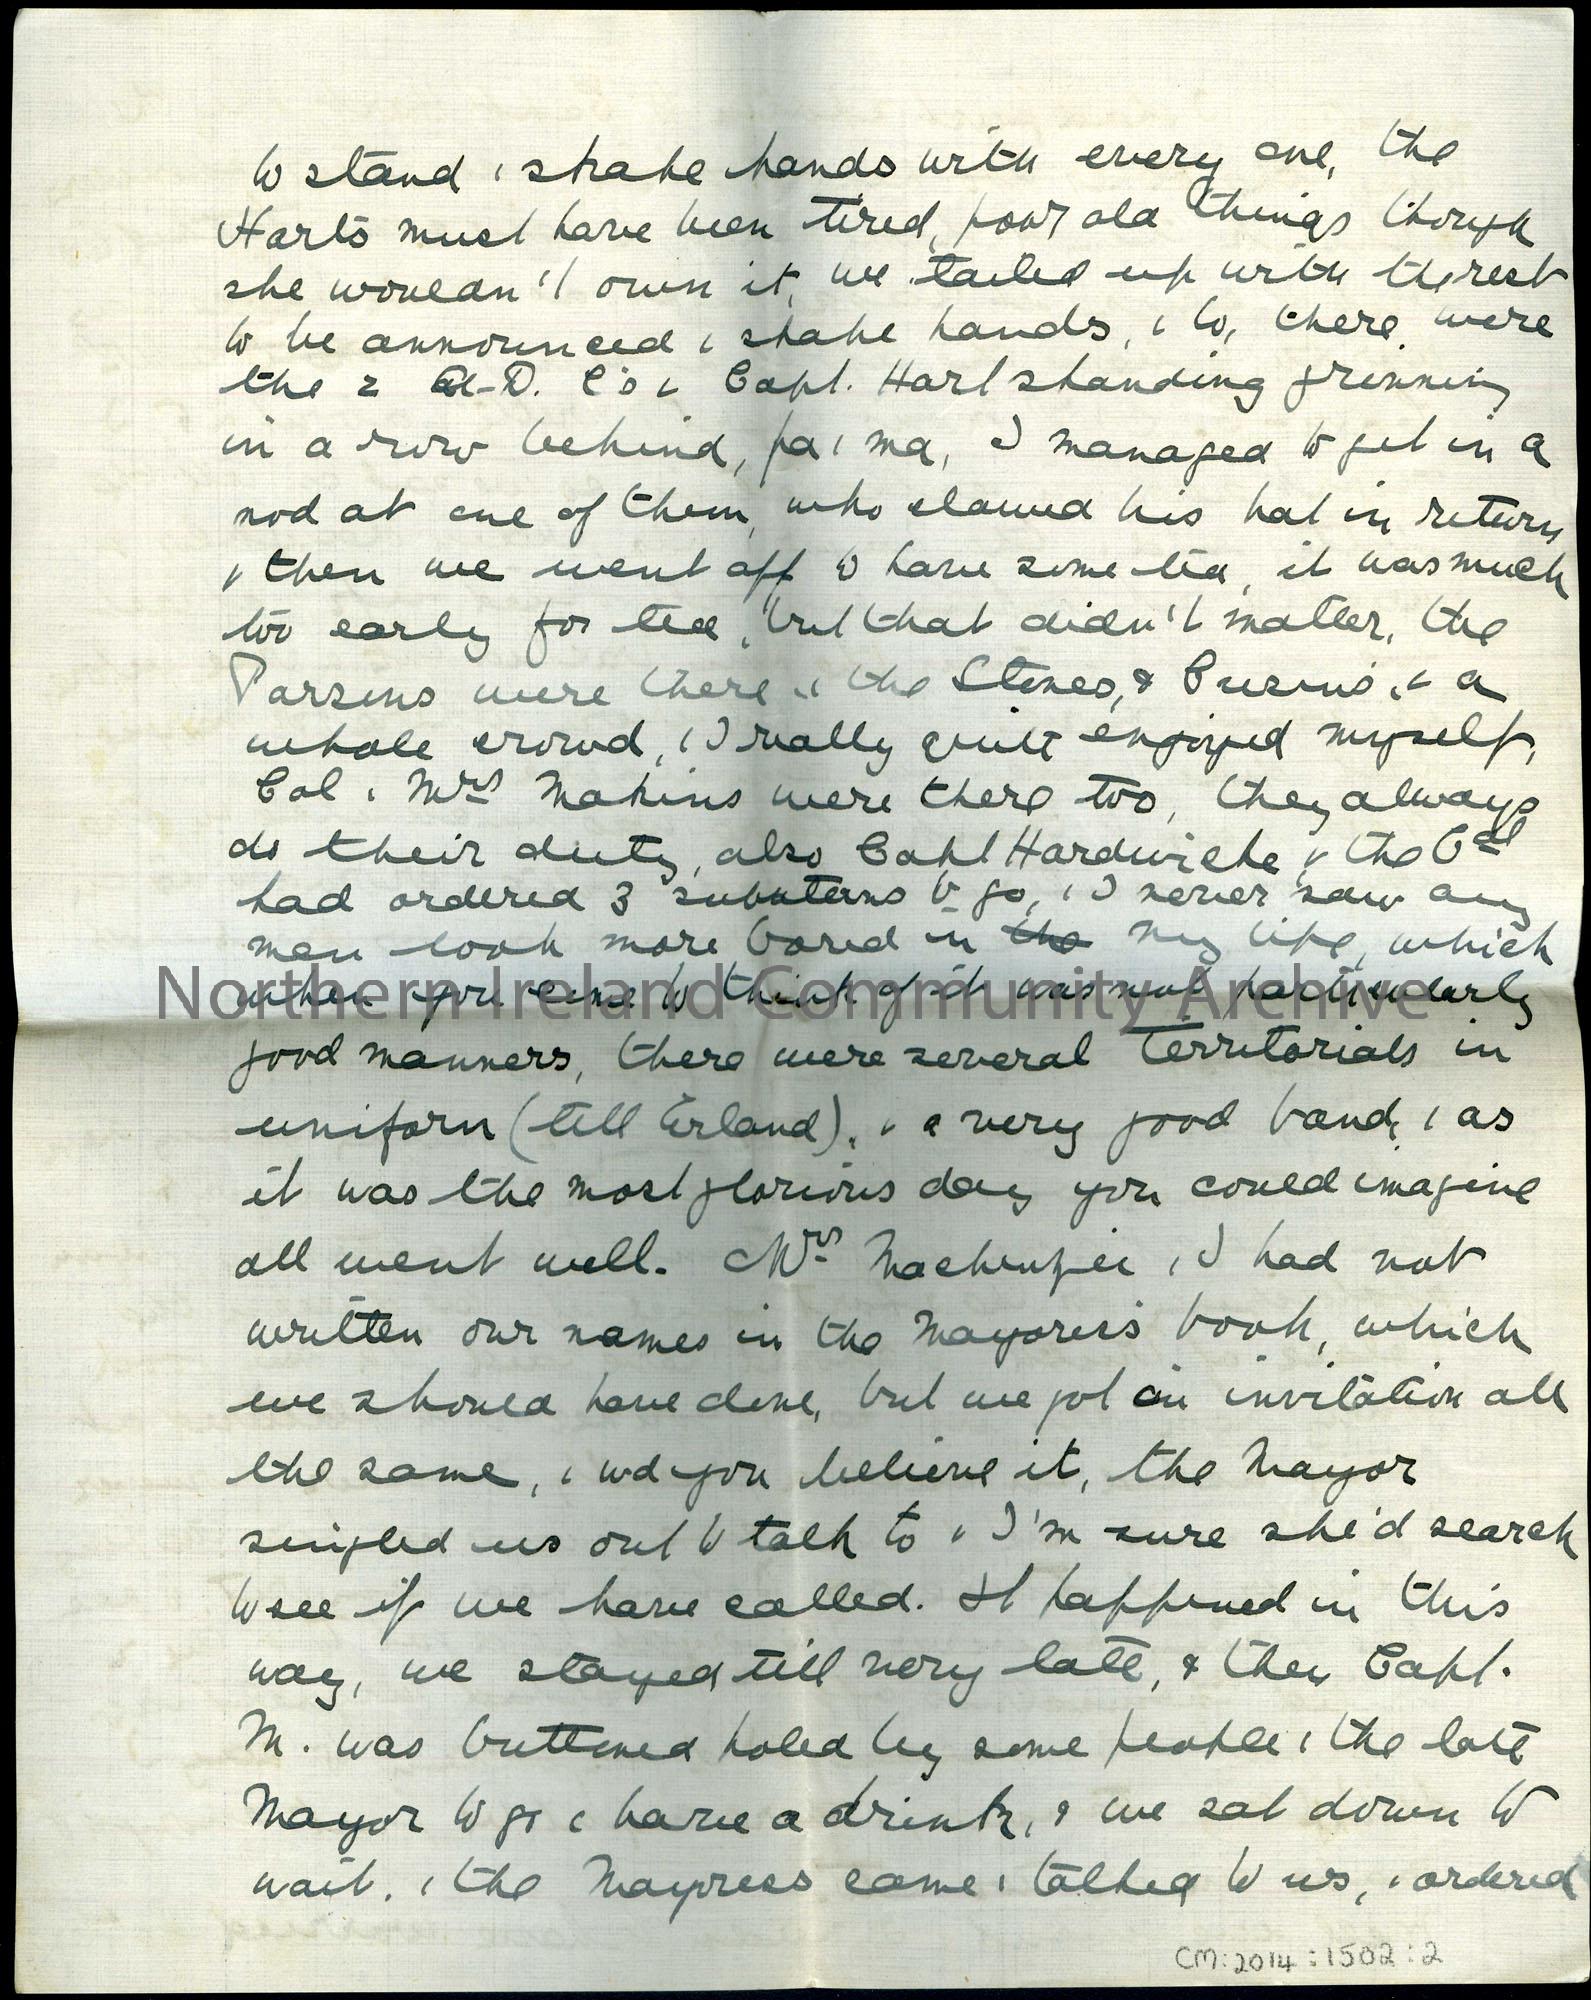 to stand & shake hands with every one, the
Harts must have been tired, poor old things though
she wouldn't own it, we tailed up with the rest
to be announced & shake hands, & lo, there were
the 2 A-D. C's & Capt. Hart standing grinning
in a row behind, pa & ma, I managed to get in a
nod at one of them, who clawed his hat in return
& then we went off to have some tea, it was much
too early for tea, but that didn't matter, the
Parsons were there, & the Stones, & Cuzins, & a
whole crowd, & I really quite enjoyed myself,
Col & Mrs Makins were there too, they always
do their duty, also Capt Hardwicke, & the Col
had ordered 3 subalterns to go, & I never saw any
men look more bored in the my life, which
when you come to think of it was not particularly
good manners, there were several Territorials in
uniform (tell Erland), & a very good band, & as
it was the most glorious day you could imagine
all went well. Mrs Mackenzie & I had not
written our names in the Mayoress's book, which
we should have done, but we got an invitation all
the same, & wd you believe it, the Mayor
singled us out to talk to & I'm sure she'd search
to see if we have called. It happened in this
way, we stayed till very late, & then Capt.
M. was buttoned holed by some people & the late
Mayor to go & have a drink, & we sat down to
wait, & the Mayoress came & talked to us, & ordered
CM:2014:1502:2
Northern Ireland Community Archive